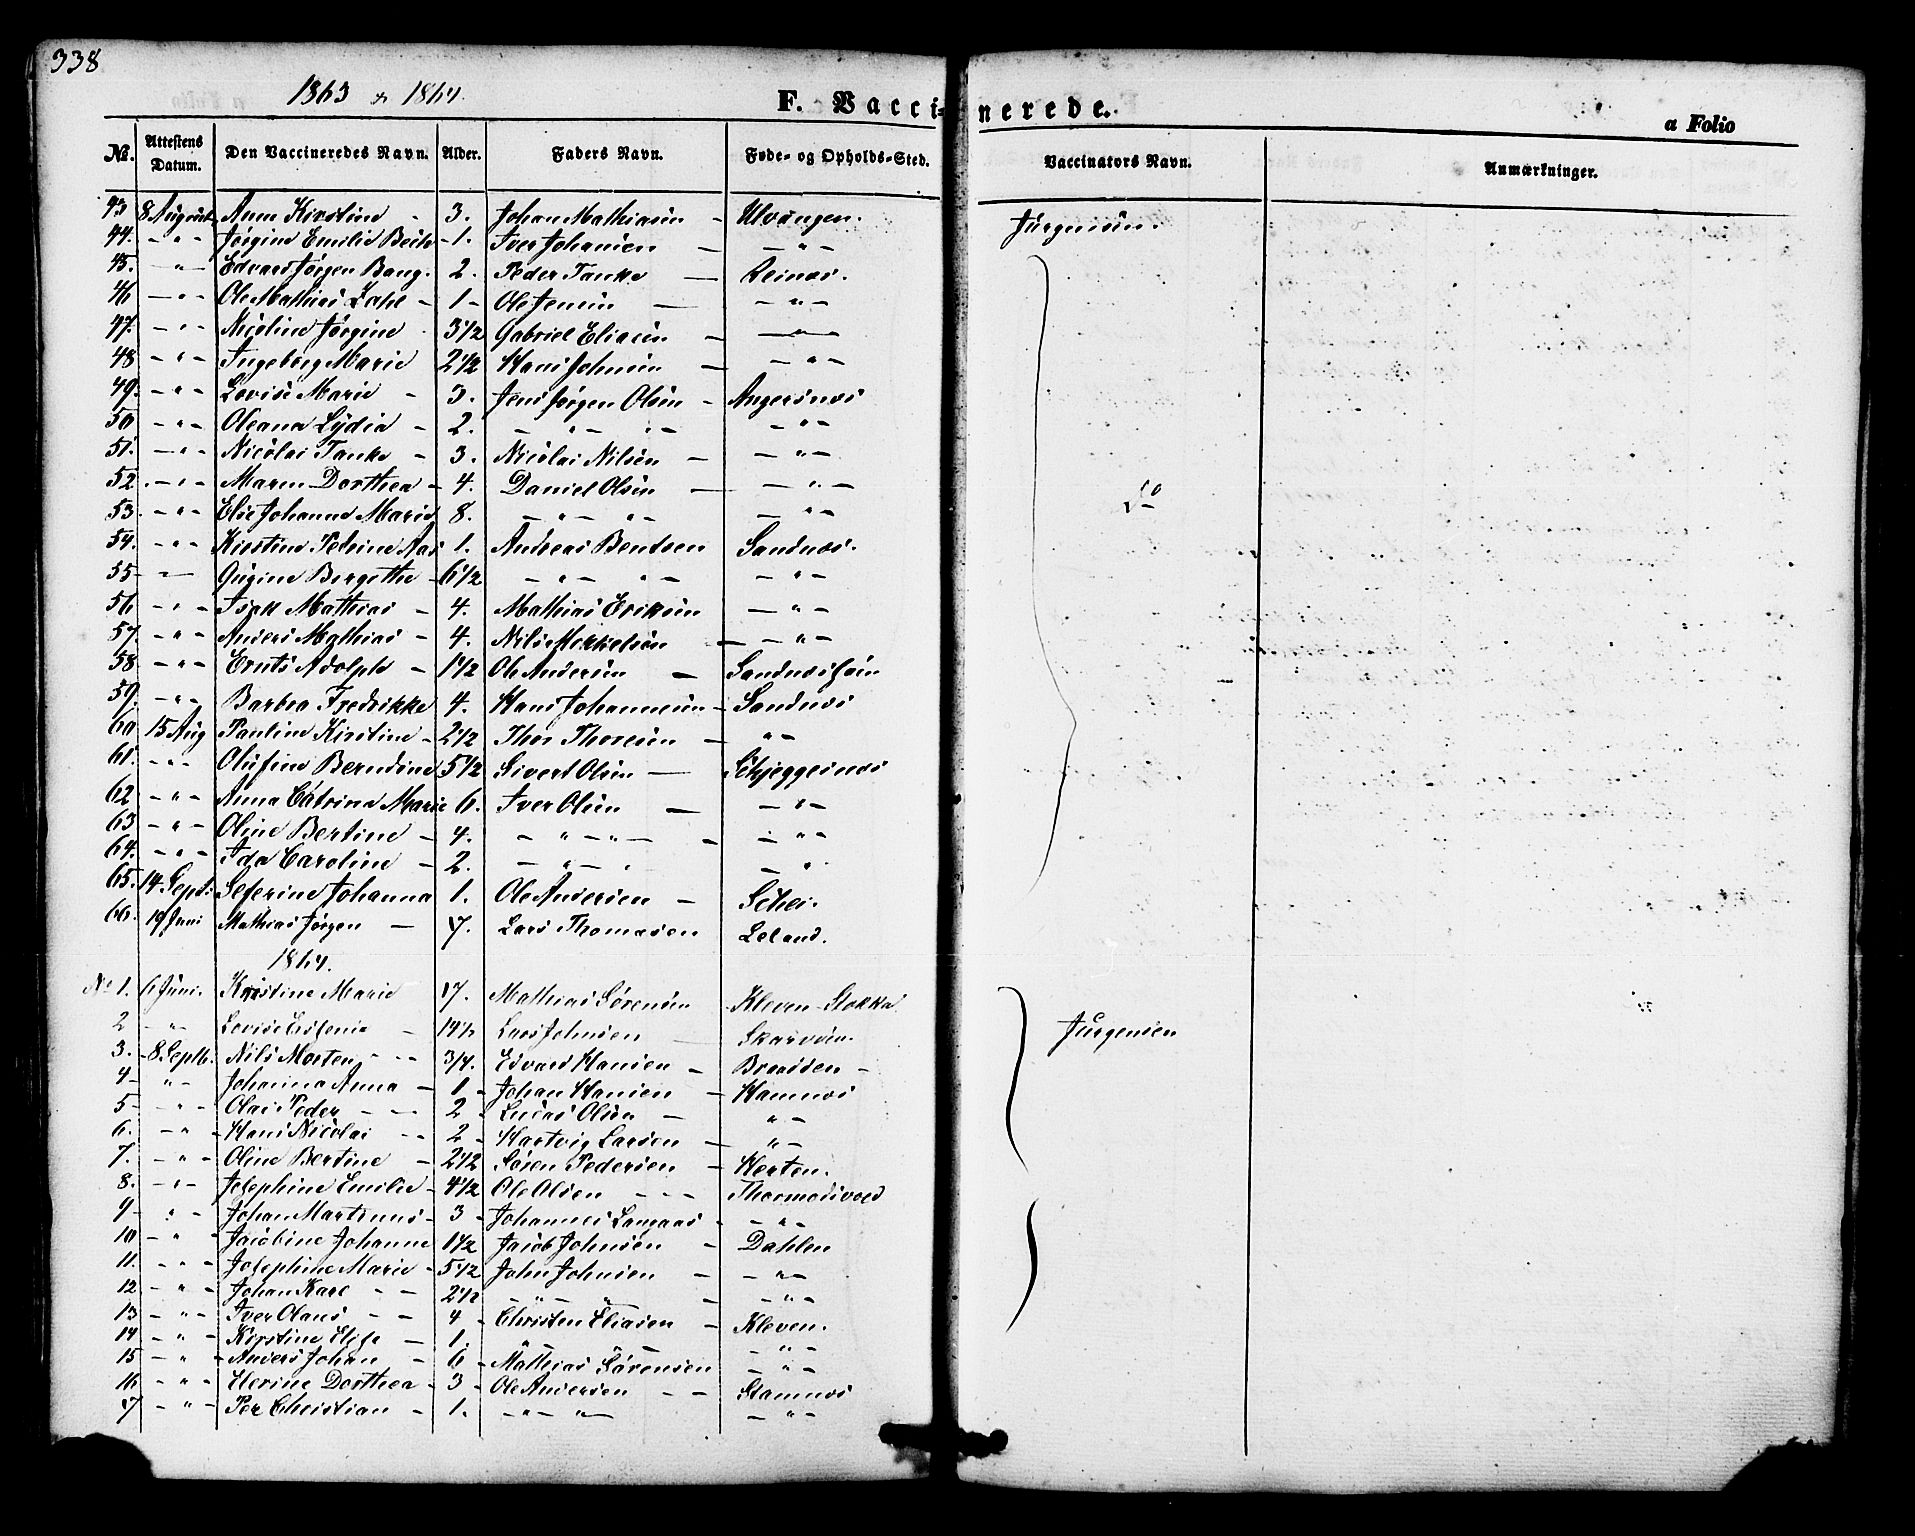 338
1863 & 1864.
F. Vaccinerede.
a Folio
No. Attestens Datum. Den Vaccineredes Navn. Alder. Faders Navn. Føde- og Opholds-Sted. Vaccinators Navn. Anmærkninger.
43 8 August Anne Kirstine - 3. Johan Mathiesen - Ulvangen. Jürgensen.
44. - " - Jørgine Emilie - 1. Iver Johansen - - " -
45. - " - Edvard Jørgen Bang. 2. Peder Tanke - Reinæs.
46 - " - Ole Mathias Zahl - 1 - Ole Jensen - - " -
47. - " - Nicoline Jørgine 3 1/2 Gabriel Eliasen - - " -
48 - " - Ingeborg Marie 2 1/2 Hans Johnsen - - " -
49. - " - Lovise Marie - 3. Jens Jørgen Olsen - Angersnæs
50 - " - Oleana Lydia - 2. - " - " - - " -
51. - " - Nicolai Tanke - 3. Nicolai Nilsen - - " -
52. - " - Maren Dorthea - 4. Daniel Olsen - - " - do
53. - " - Else Johanne Marie 8. - " - " - - " -
54. - " - Kirstine Petrine Aas 1. Andreas Bentsen Sandnæs.
55 - - Gurine Bergithe - 6 1/2 - " - " - - " -
56 - " - Isak Mathias - 4. Mathias Eriksen - " -
57. - " - Anders Mathias - 4. Nils Mikkelsen - - " -
58 - " - Ernts Adolph - 1 1/2 Ole Andersen -
59. - " - Barbra Fredrikke 4. Hans Johannesen - Sandnæs
60 15 Aug Pauline Kirstine - 2 1/2 Thor Thoresen - " -
61. - " - Olufine Berndine 5 1/2 Sivert Olsen - Skjeggesnæs
62 - " - Anna Catrina Marie 6. Iver Olsen - - " -
63 - " - Oline Bertine - 4. - " - " - - - " -
64. - " - Ida Caroline - 2. - " - " - " .
65. 14 Sept: Seferine Johanna 1. Ole Andersen - Schei.
66. 19 Juni Mathias Jørgen - 17. Lars Thomasen Leland.
1864.
No 1. 6 Juni. Kirstine Marie 17. Mathias Sørensen Kleven Stokka
2 - " - Lovise - 14 1/2 Lars Johnsen - Jürgensen
3. - 8 Septb. Nils Morten - - 3/4. Edvard Hansen -
4 - " - Johanna Anna - 1 - Johan Hansen - Hamnæs
5 - " - Olai Peder - - 2 - Lucas Olsen - " -
6. - " - Hans Nicolai - - 2 - Hartvig Larsen - " -
7. - " - Oline Bertine - 2 1/2 Søren Pedersen - Herten.
8. - " - Josephine Emilie - 4 1/2 Ole Olsen - - - Thormodsvold
9 - " - Johan Martinus - 3 - Johannes Langaas - - " -
10 - " - Jacobine Johanne 1 1/2 Jacob Johnsen - Dahlen
11. - " - Josephine Marie - 5 1/2 John Johnsen - - " -
12 - " - Johan Karl - - 2 1/2 - " - " - - - " -
13 - " - Iver Olaus - - 4 - Christen Eliasen - Kleven.
14 - " - Kirstine Elise - 1. " - " - - " -
15 - " - Anders Johan - 6 - Mathias Sørensen - " -
16 - " - Elerine Dorthea - 3 - Ole Andersen - - Stamnæs
17 - " - Per Christian - 1. - " - " - - " -